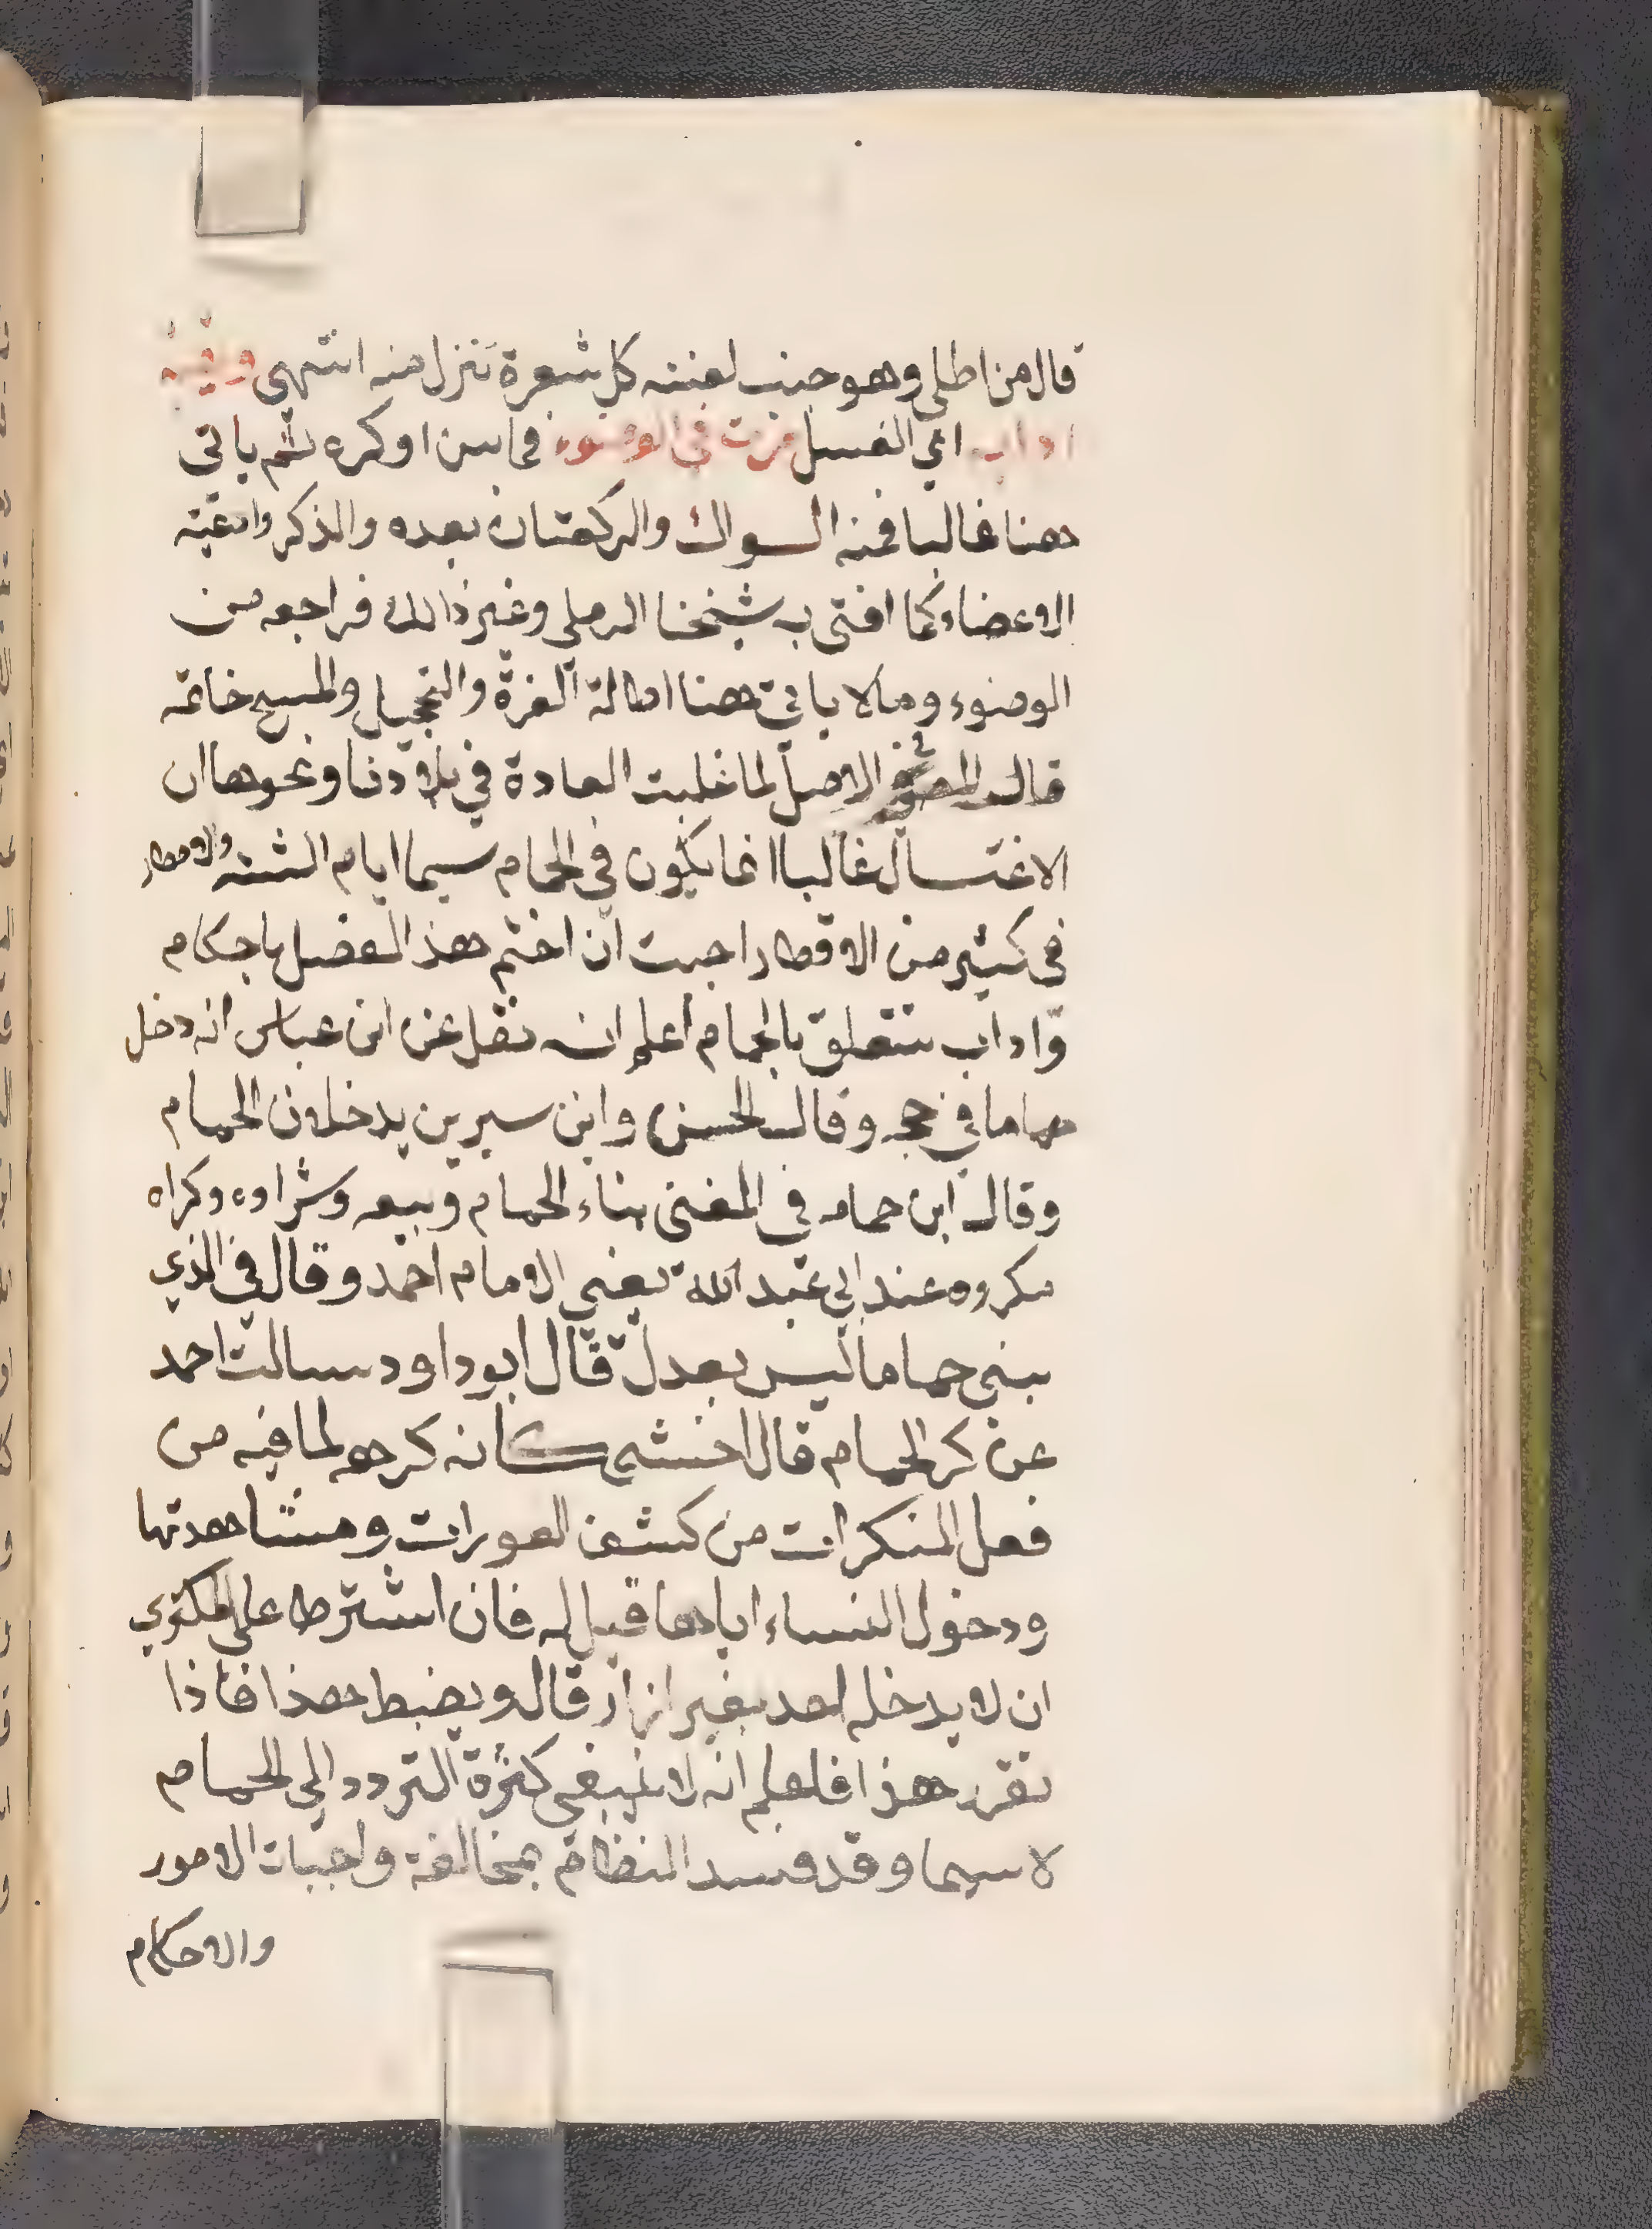 قال من اطلى وهو جنب لعنته كل شعرة تنزل منه انتهى وفيه
اداب اي الغسل مرت في الوضوء فما سن او كره ثم ياتي
هنا غالبا فمنه السواك والركعتان بعده والذكر وادعية
الاعضاء كما افتى به شيخنا الرملي وغير ذالك فراجعه من
الوضوء ومالا ياتي هنا اطالة الغرة والتحجيل والمسح خاتمة
قال الاصل لما غلبت العادة في بلادنا ونحوها ان
الاغتسال غالبا انما يكون في الحمام سيما ايام الشته والامطار
في كثير من الاقطار احببت ان اختم هذ الفصل باحكام
واداب تتعلق بالحمام اعلم انه نقل عن ابن عباس انه دخل
حماما في حجه وقال الحسن وابن سيرين يدخلان الحمام
وقال ابن حمامه في المغني بناء الحمام وبيعه وشراوه وكراه
مكروه عند ابي عبد الله يعني الامام احمد وقال في الذي
يبني حماما ليس بعدل قال ابو داود سالت احمد
عن كر الحمام قال اخشى كانه كرهه لما فيه من
فعل المنكرات من كشف العورات ومشاهدتها
ودخول النساء اياها قيل له فان اشترط على المكتري
ان لا يدخله احد بغير ازار قال ويضبط هذا فاذا
تقرر هذا فلعلم انه لا ينبغي كثرة التردد الى الحمام
لا سيما وقد فسد النظام بمخالفة واجبات الامور
والاحكام